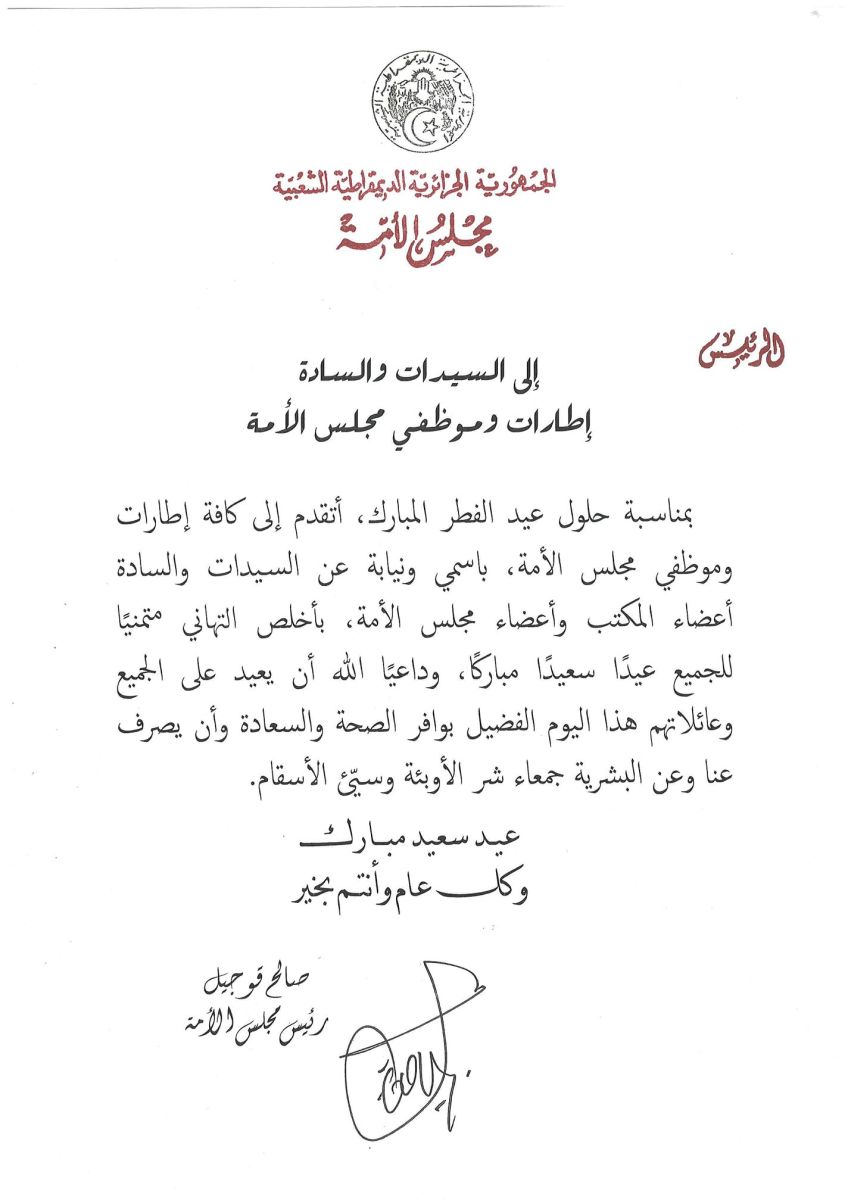 الجمهورية الجزائرية الديمقراطية الشعبية
الجمْهُوريّة الجزائريّة الديمقراطيّة الشعْبيّة
مجْلسُ الأمّة
الرئيس
إلى السيدات والسادة
إطارات وموظفي مجلس الأمة
بمناسبة حلول عيد الفطر المبارك، أتقدم إلى كافة إطارات
وموظفي مجلس الأمة، باسمي ونيابة عن السيدات والسادة
أعضاء المكتب وأعضاء مجلس الأمة، بأخلص التهاني متمنيًا
للجميع عيدًا سعيدًا مباركًا، وداعيًا الله أن يعيد على الجميع
وعائلاتهم هذا اليوم الفضيل بوافر الصحة والسعادة وأن يصرف
عنا وعن البشرية جمعاء شر الأوبئة وسيّئ الأسقام.
عيد سعيد مبارك
وكل عام وأنتم بخير
صالح قوجيل
رئيس مجلس الأمة